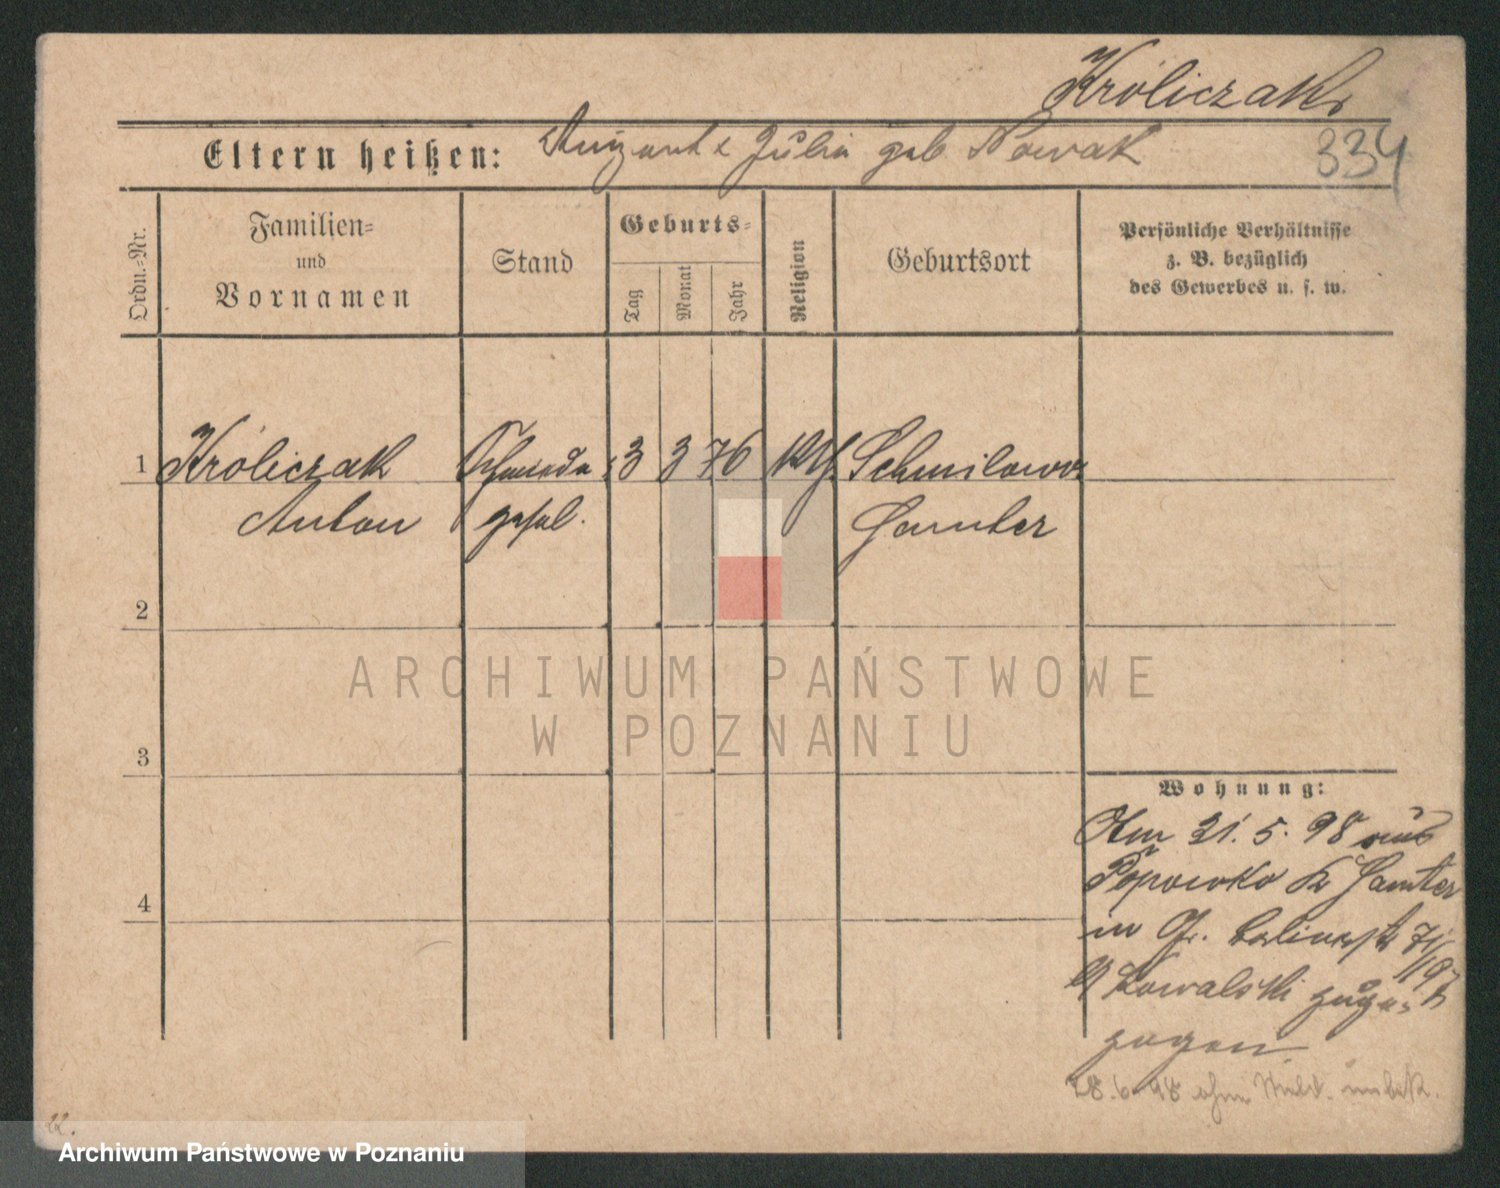 Króliczak
334
Eltern heißen: August & Julia geb Nowak
Ordn.-Nr.
Familien- und Vornamen
Stand
Geburts-
Tag
Monat
Jahr
Religion
Geburtsort
Persönliche Verhältnisse
z. B. bezüglich
des Gewerbes u. s. w.
1 Króliczak Schmiede 3 3 76 Kth Schmilowo
Anton gesel. Samter
2
3
4
ARCHIWUM PAŃSTWOWE
W POZNANIU
Wohnung:
Am 21. 5. 98 aus
Popowko K Samter
in Gr. Berlinerstr 71/197
b Kowalski zuge-
zogen
28.6.98 ohne Meld. unbek.
22.
Archiwum Państwowe w Poznaniu